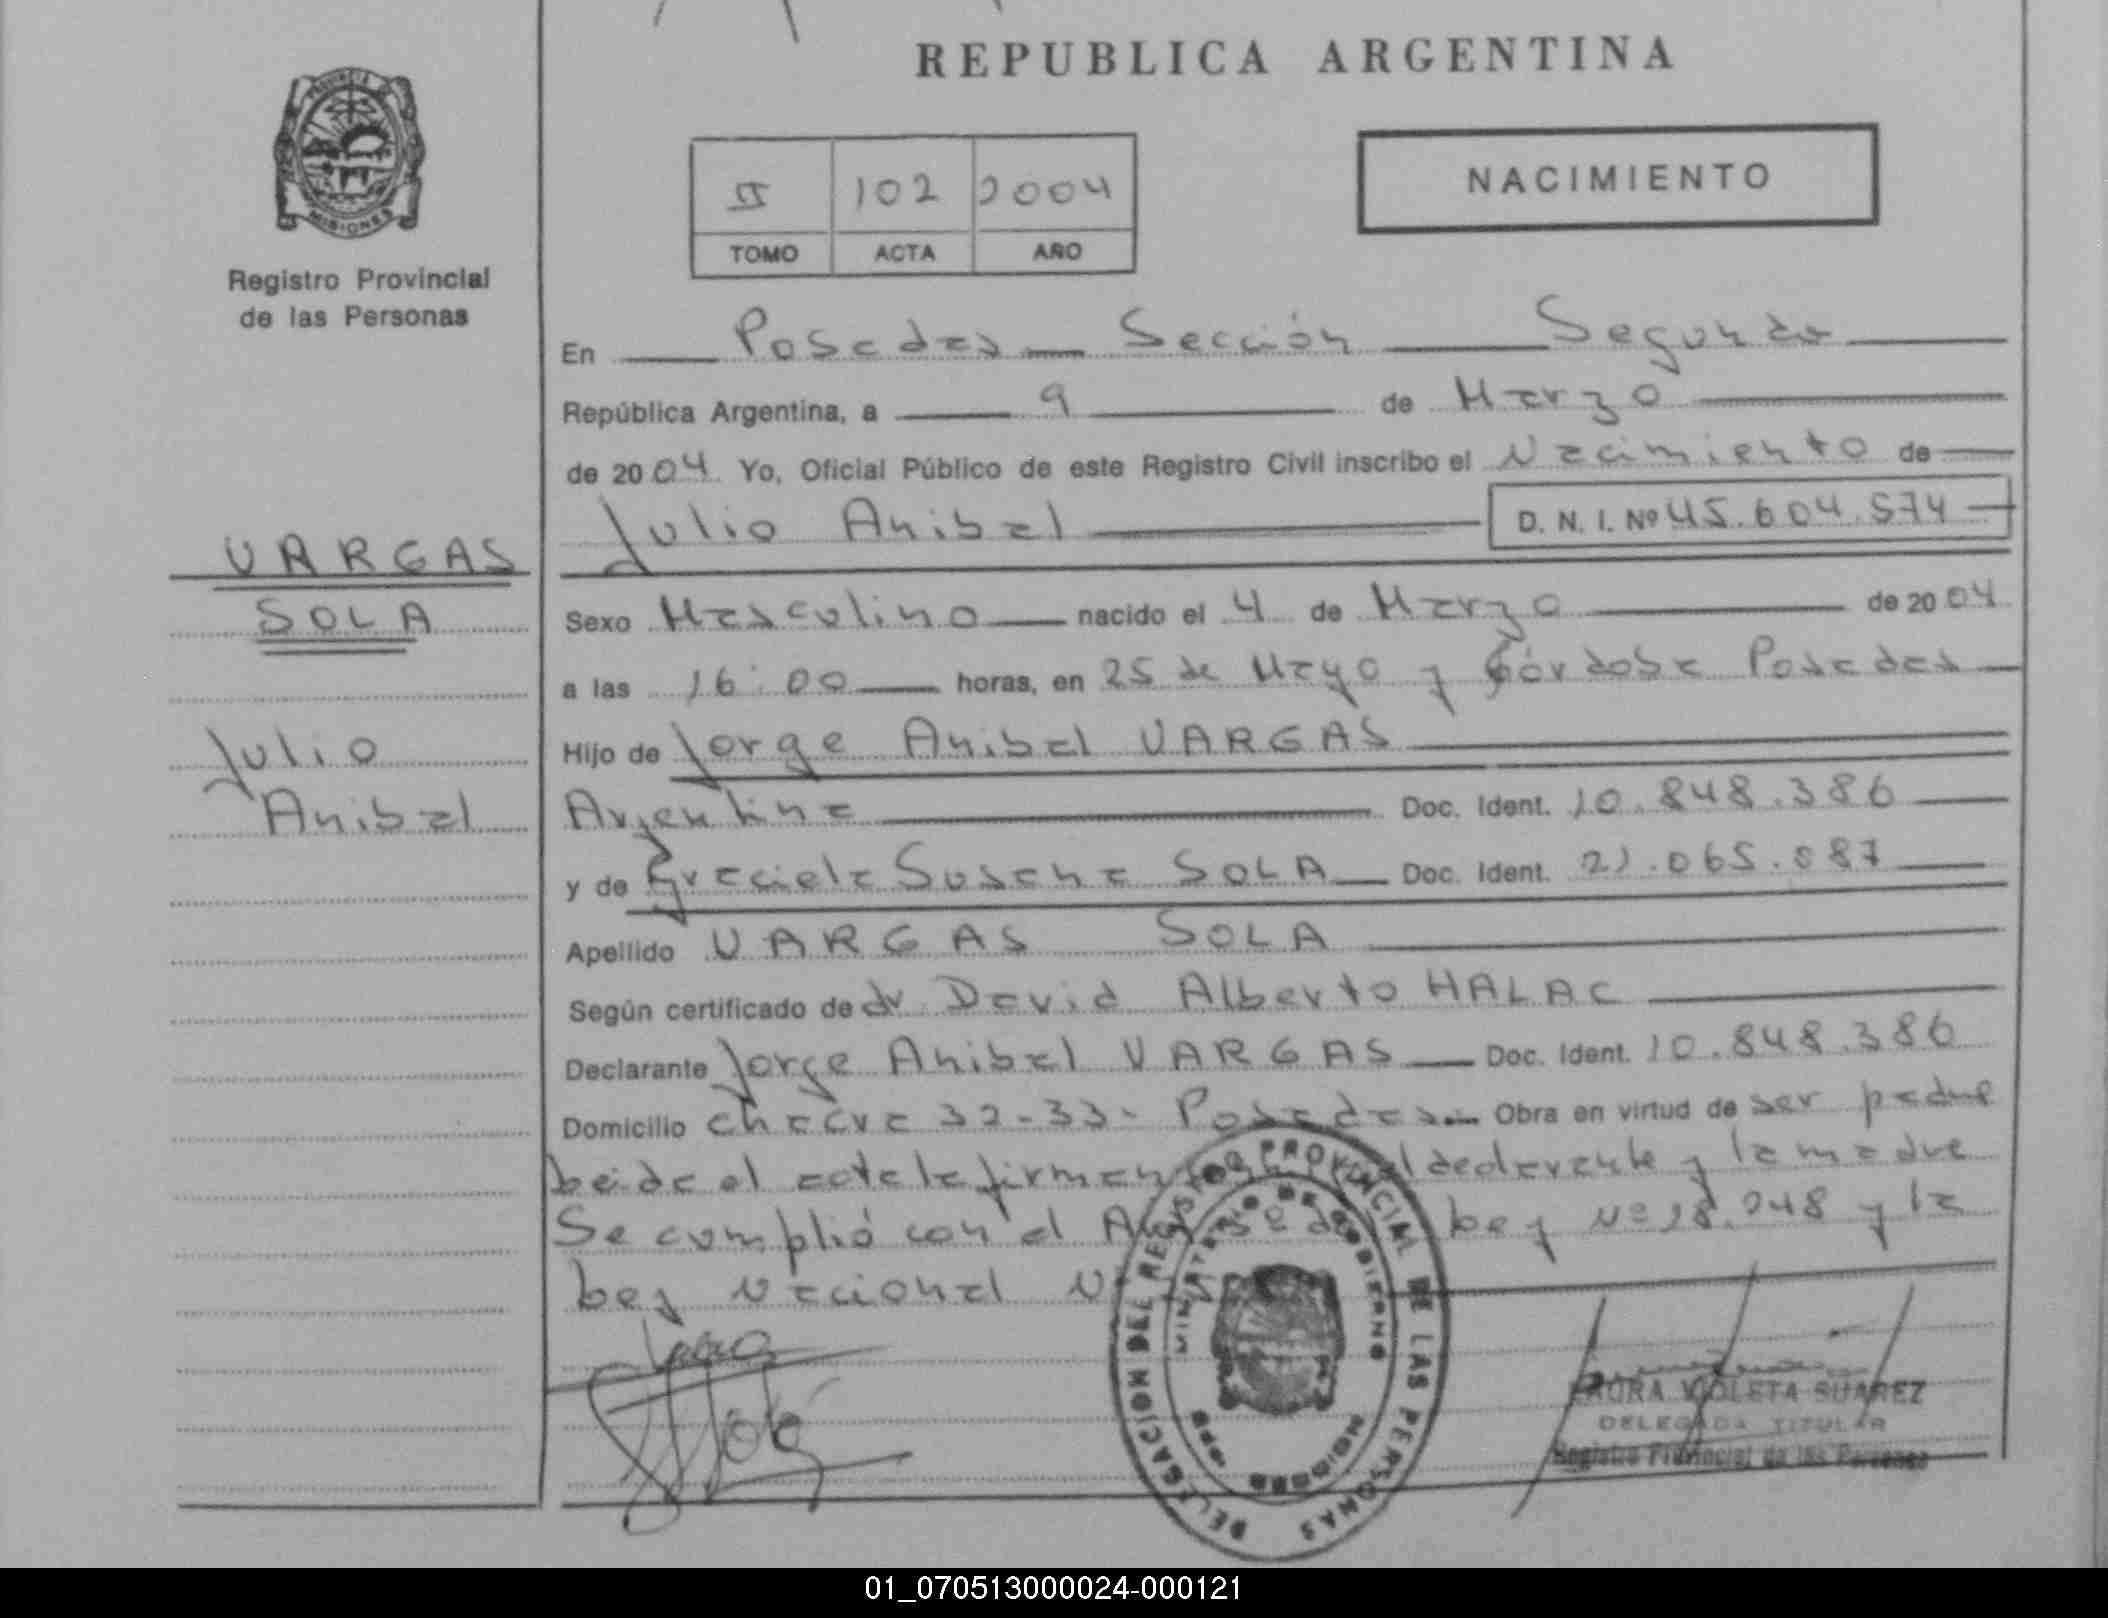 REPUBLICA ARGENTINA
PROVINCIA DE
MISIONES
Registro Provincial
de las Personas
II 102 2004
TOMO ACTA AÑO
NACIMIENTO
En Posadas Sección Segunda
República Argentina, a 9 de Marzo
de 2004 Yo, Oficial Público de este Registro Civil inscribo el Nacimiento de
Julio Anibal D. N. I. Nº 45.604.574
VARGAS
SOLA
Julio
Anibal
Sexo Masculino nacido el 4 de Marzo de 2004
a las 16:00 horas, en 25 de Mayo y Córdoba Posadas
Hijo de Jorge Anibal VARGAS
Argentina Doc. Ident. 10.848.386
y de Graciela Susana SOLA Doc. Ident. 21.065.087
Apellido VARGAS SOLA
Según certificado de dr David Alberto HALAC
Declarante Jorge Anibal VARGAS Doc. Ident. 10.848.386
Domicilio chacra 32-33- Posadas Obra en virtud de ser padre
Leida el acta la firman el declarante y la madre
Se cumplió con el Art 5º de Ley Nº 18.248 y la
Ley Nacional
DELEGACION DEL REGISTRO PROVINCIAL DE LAS PERSONAS
MINISTERIO DE GOBIERNO
LAURA VIOLETA SUAREZ
DELEGADA TITULAR
Registro Provincial de las Personas
01_070513000024-000121